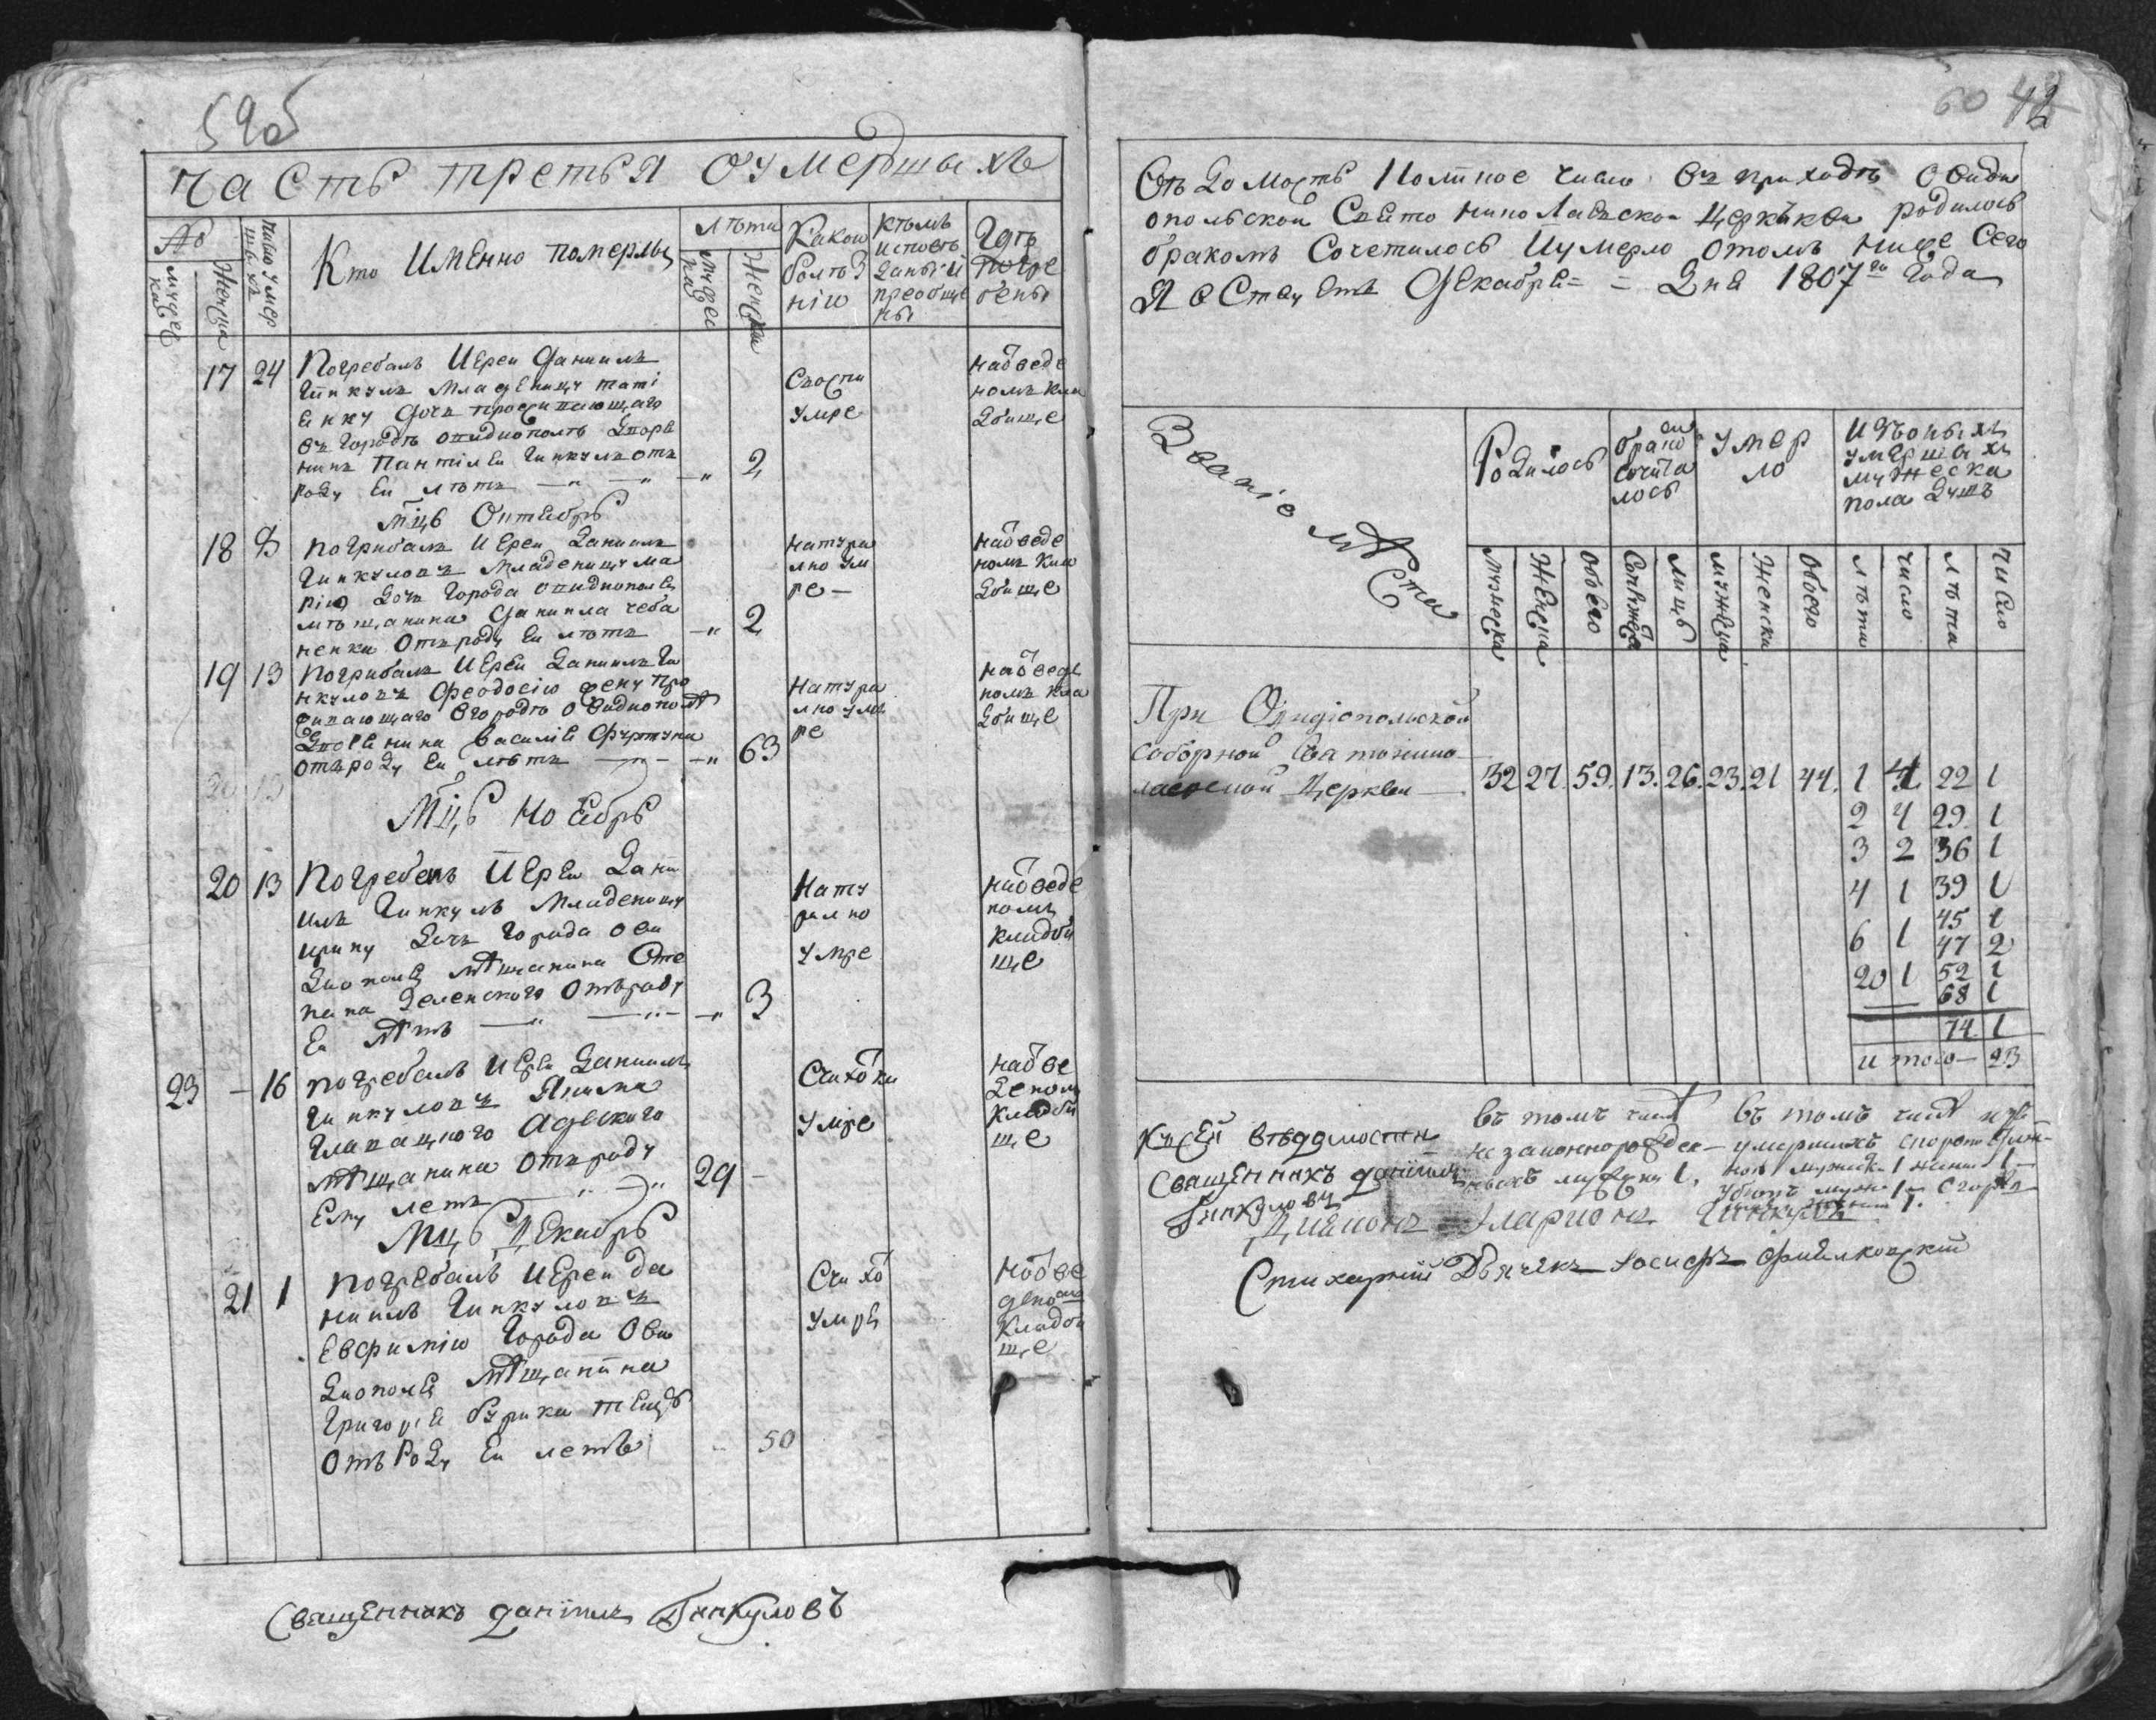 59об
Часть третья оумершыхъ
№
мужес
ка
женска
число умер
шихъ
Кто именно померлы
лѣта
мужес
ка
женски
Какою
болѣз
нію
кѣмъ
исповѣ
даны и
преобще
ны
Гдѣ
погре
бены
17 24 Погребалъ Иереи Даниилъ
Гинкулъ младеницу тати
енку дочъ проживающаго
въ городѣ овидиополѣ дворя
нина Пантілея Гинкула отъ
роду ей лѣтъ — 2
Скоспи
умре
наѡведе
номъ кла
дбище
Мцъ Октябрь
18 8 погрибалъ Иереи Даниилъ
Гинкуловъ младеницу ма
рію дочъ города овидиополя
мѣщанина Даниила чеба
ненка отъ роду ей лѣтъ — 2
натура
лно ум
ре —
наѡведе
номъ кла
дбище
19 13 Погрибалъ Иереи Даниилъ Ги
нкуловъ Феодосію жену про
живающаго вгородѣ овидиополѣ
дворянина Василія Фуртуни
отъ роду ей лѣтъ — 63
натура
лно уме
ре
наѡведе
номъ кла
дбище
20 13
Мцъ Ноябрь
20 13 Погребенъ Иереи Дани
илъ Гинкулъ младеницу
ирину дочъ города ови
диополя мѣщанина Сте
пана Зеленского отъ роду
ей лѣтъ — 3
Нату
рално
умре
наѡведе
номъ
кладби
ще
23 — 16 погребалъ Иереи Даниилъ
Гинкуловъ Якима
Главацкого Адескаго
мѣщанина отъ роду
ему летъ — 29 —
Счахотки
умре
наѡве
деномъ
кладби
ще
Мцъ Декабрь
21 1 погребалъ Иереи Да
ниилъ Гинкуловъ
Евфимію города Ови
диополя мѣщанина
Григорія бурика тещу
отъ роду ей летъ 50
Счахо
умре
наѡве
деномъ
кладби
ще
Священникъ Даніилъ Гинкуловъ
60 42
Вѣдомость Колтное число въ приходѣ Овиди
опольской Свято николаевской церкъкви родилось
бракомъ Сочеталось иумерло отомъ ниже Сего
Явствуетъ Декабря = = Дня 1807го Года
Званіе мѣста
Родилось
бракомъ
сочета
лось
умер
ло
изъоныхъ
умершихъ
мужеска
пола душъ
мужеска
женска
обоего
Супружес
лицъ
мужеска
женска
обоего
лѣта
число
лѣта
число
При Овидіопольской
соборной Святонико
лаевской Церкви — 32 27. 59. 13. 26. 23. 21 44. 1 4 22 1
2 4 29 1
3 2 36 1
4 1 39 1
6 1 45 1
47 2
20 1 52 1
68 1
74 1
итого — 23
Ксей вѣдомости
Священникъ Даніилъ
Гинкуловъ
въ томъ числѣ
незаконнорожден-
ныхъ мужеска 1.
въ томъ числѣ
умершихъ скоропостиж-
но мужеск 1 женск 1 —
убитъ муж 1
Диаконъ Иларионъ Гинкуловъ
Стихарный Дьячекъ Іосифъ Фиялковскій